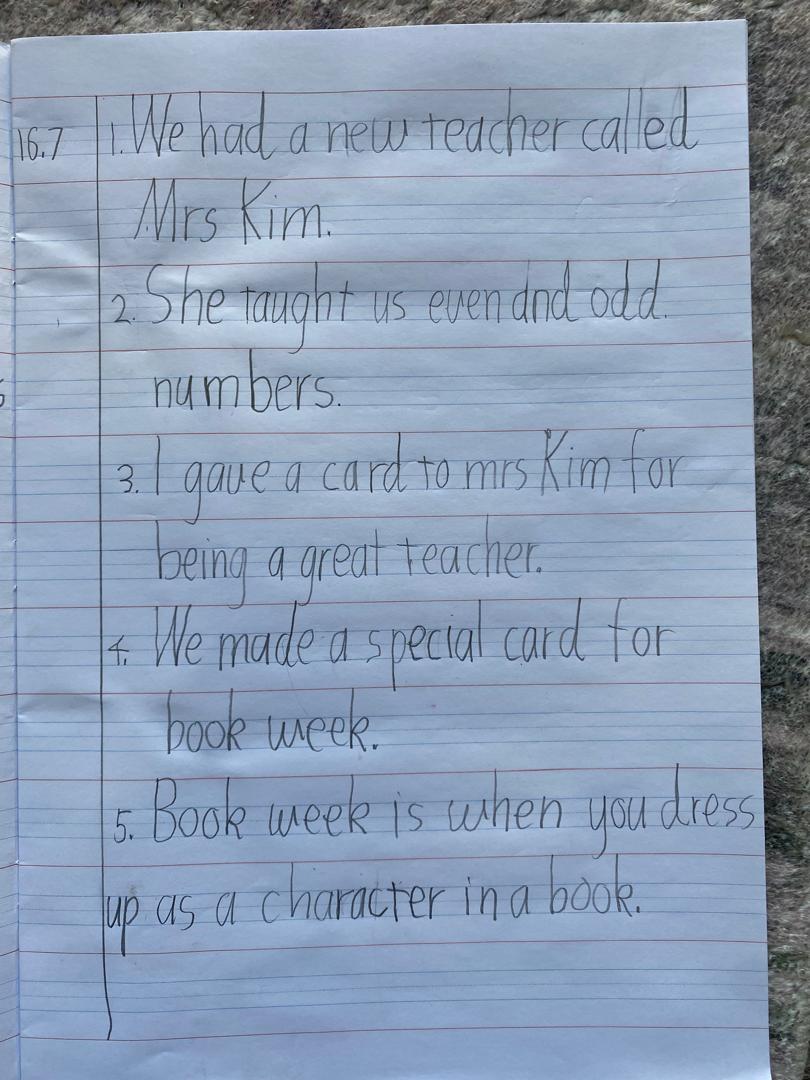 16.7 1. We had a new teacher called
Mrs Kim.
2. She taught us even and odd.
numbers.
3. I gave a card to mrs Kim for
being a great teacher.
4. We made a special card for
book week.
5. Book week is when you dress
up as a character in a book.